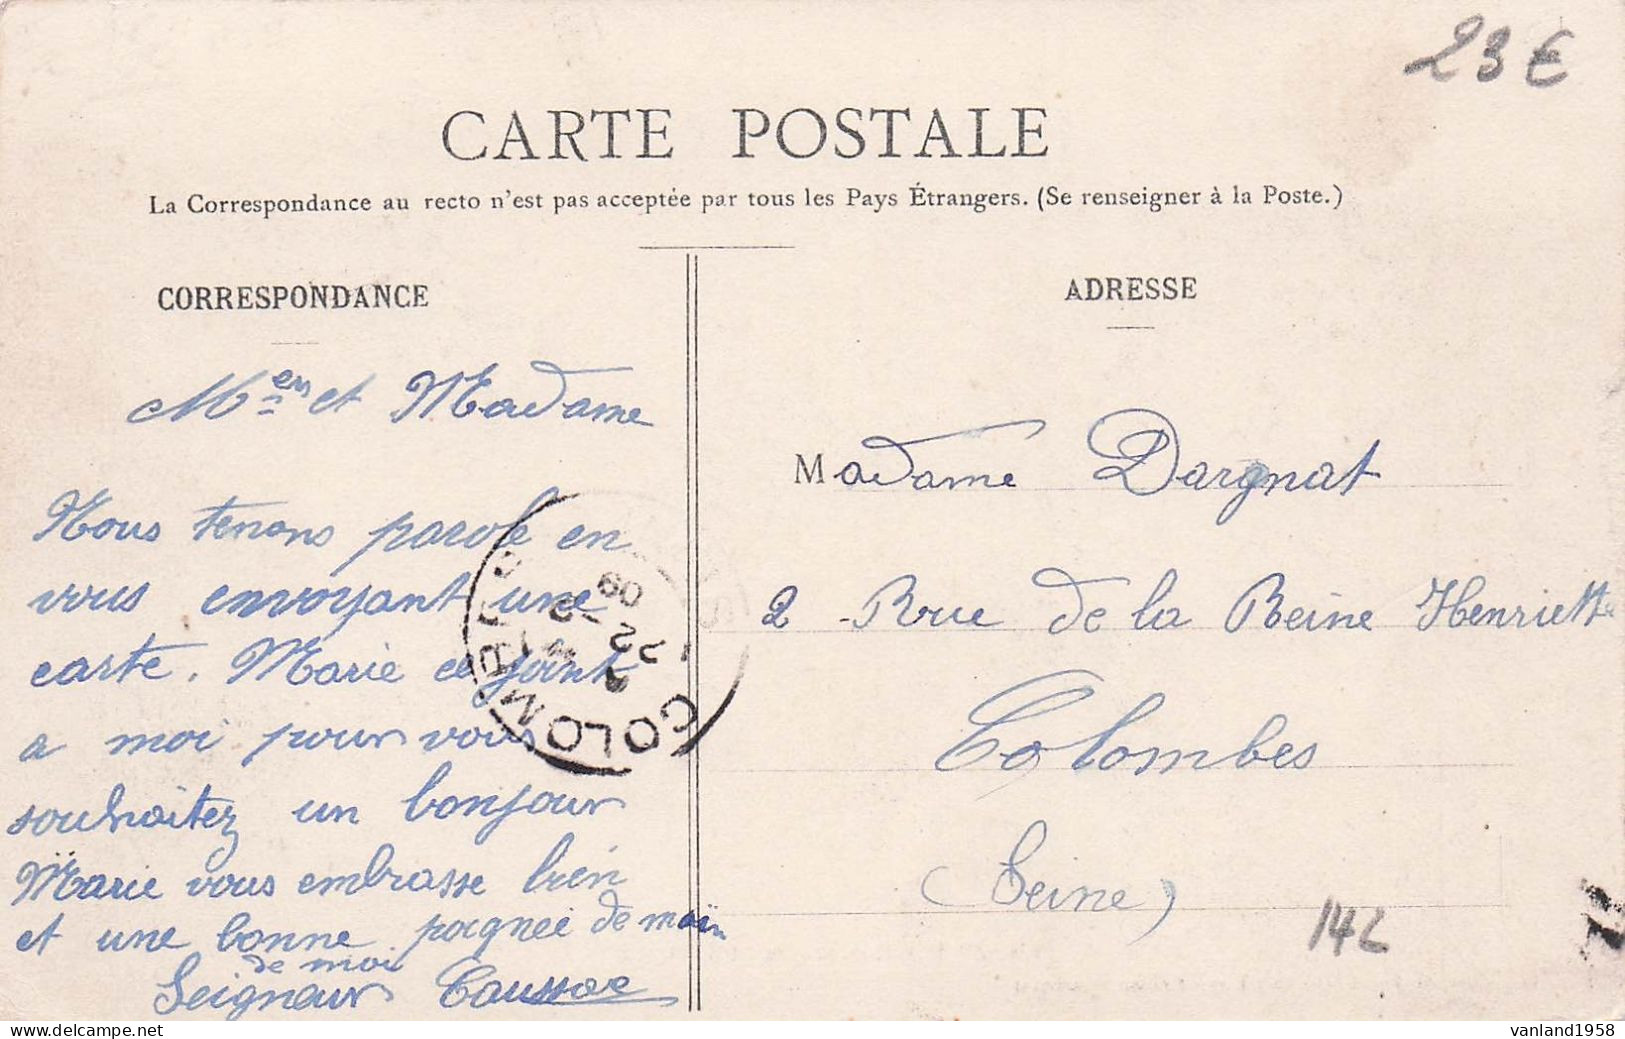 23 €
CARTE POSTALE
La Correspondance au recto n'est pas acceptée par tous les Pays Étrangers. (Se renseigner à la Poste.)
CORRESPONDANCE
Mers et Madame
Nous tenons parole en
vous envoyant une
carte. Marie ce joint
a moi pour vous
souhaitez un bonjour
Marie vous embrasse bien
et une bonne poignée de main
de moi
Seigneur Caussae
ADRESSE
Madame Dargnat
2 - Rue de la Reine Henriette
Colombes
(Seine)
COLOMBES
22 -2
09
14L
vanland1958